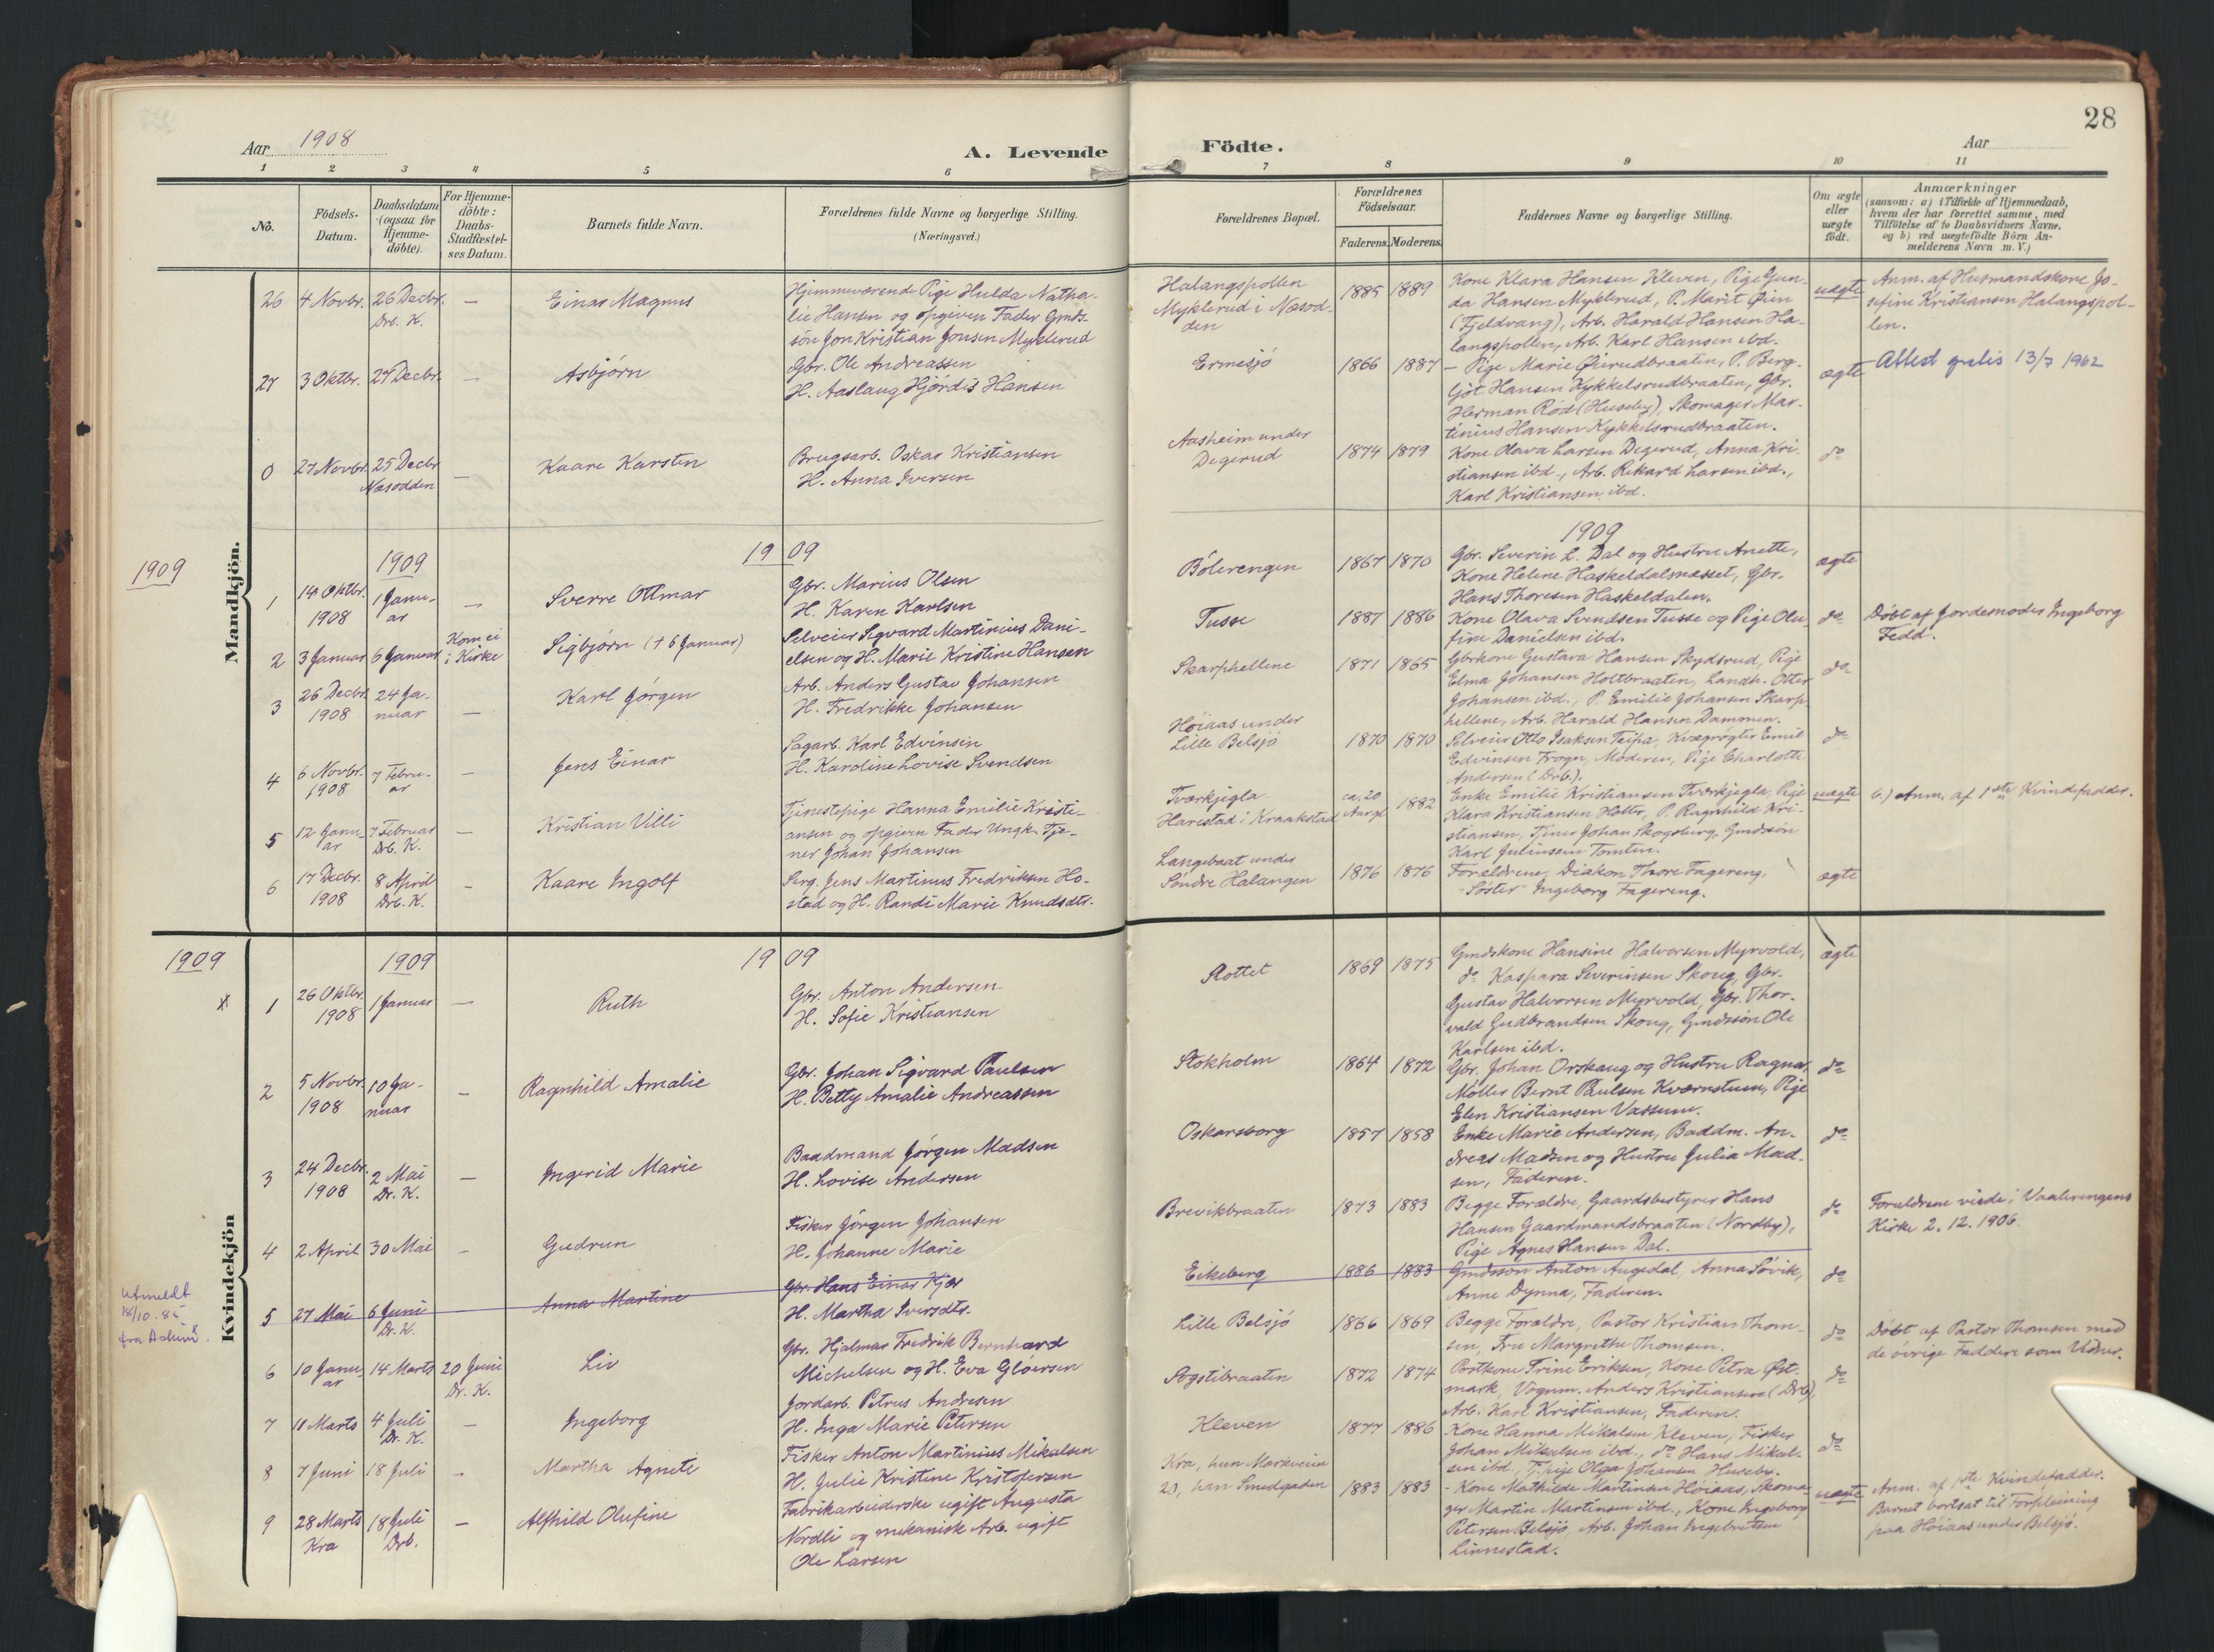 28
Aar 1908
A. Levende Födte.
Aar
1 2 3 4 5 6 7 8 9 10 11
No.
Födsels-
Datum.
Daabsdatum
(ogsaa for
Hjemme-
döbte).
For Hjemme-
döbte:
Daabs-
Stadfæstel-
ses Datum.
Barnets fulde Navn.
Forældrenes fulde Navne og borgerlige Stilling.
(Næringsvei.)
Forældrenes Bopæl.
Forældrenes
Födselsaar.
Faderens. Moderens.
Faddernes Navne og borgerlige Stilling.
Om ægte
eller
uægte
födt.
Anmærkninger
(saasom: a) i Tilfælde af Hjemmedaab,
hvem der har forrettet samme, med
Tilföielse af to Daabsvidners Navne,
og b) ved uægtefödte Börn An-
melderens Navn m. V.)
Mandkjön.
26 4 Novbr. 26 Decbr. — Einar Magnus
Drb. K.
Hjemmeværende Pige Hulda Natha-
lie Hansen og opgiven Fader Gmds.
sön Jon Kristian Jonsen Myklerud
Halangspollen
Myklerud i Næsod-
den
1885 1889
Kone Klara Hansen Kleven, Pige Gun-
da Hansen Myklerud, P. Marit Øien
(Fjeldvang), Arb. Harald Hansen Ha-
langspollen, Arb. Karl Hansen ibd.
uægte
Anm. af Husmandskone Jo-
sefine Kristiansen Halangspol-
len.
27 3 Oktbr. 27 Decbr. — Asbjörn
Gbr. Ole Andreassen
H. Aaslaug Hjördis Hansen
Ermesjö
1866 1887
– Pige Marie Øierudbraaten, P. Berg-
ljot Hansen Kykkelsrudbraaten, Gbr.
Herman Röd (Huseby), Skomager Mar-
tinius Hansen Kykkelsrudbraaten.
ægte
Attest gratis 13/7 1962
0 27 Novbr. 25 Decbr. — Kaare Karsten
Næsodden
Brugsarb. Oskar Kristiansen
H. Anna Iversen
Aasheim under
Degerud
1874 1879
Kone Olava Larsen Degerud, Anna Kri-
stiansen ibd., Arb. Rikard Larsen ibd.,
Karl Kristiansen ibd.
do
1909
1909
1909
1909
1 14 Oktbr. 1 Janu- — Sverre Ottmar
1908 ar
Gbr. Marius Olsen
H. Karen Karlsen
Bölerengen
1867 1870
Gbr. Severin L. Dal og Hustru Anette,
Kone Helene Haskeldalsnæsset, Gbr.
Hans Thoresen Haskeldalen.
ægte
2 3 Januar 6 Januar Kom ei
i Kirke Sigbjörn († 6 Januar)
Selveier Sigvard Martinius Dani-
elsen og H. Marie Kristine Hansen
Tusse
1887 1886
Kone Olava Svendsen Tusse og Pige Olu-
fine Danielsen ibd.
do
Döbt af Jordemoder Ingeborg
Fedd.
3 26 Decbr. 24 Ja- — Karl Jörgen
1908 nuar
Arb. Anders Gustav Johansen
H. Fredrikke Johansen
Skarphellene
1871 1865
Gbrkone Gustava Hansen Skydsrud, Pige
Elma Johansen Holtbraaten, Landh. Otter
Johansen ibd., P. Emilie Johansen Skarp-
hellene, Arb. Harald Hansen Dammen.
do
4 6 Novbr. 7 Febru- — Jens Einar
1908 ar
Sagarb. Karl Edvinsen
H. Karoline Lovise Svendsen
Höiaas under
Lille Belsjö
1870 1870
Selveier Otto Isaksen Teipa, Kvægrögter Emil
Edvinsen Frogn, Moderen, Pige Charlotte
Andersen (Drb.).
do
5 12 Janu- 7 Februar — Kristian Villi
ar Drb. K.
Tjenestepige Hanna Emilie Kristi-
ansen og opgiven Fader Ungk. Tje-
ner Johan Johansen
Tværkjegla
Harestad i Kraakstad
ca. 20
Aar gl. 1882
Enke Emilie Kristiansen Tværkjegla, Pige
Klara Kristiansen Holter, P. Ragnhild Kri-
stiansen, Tjener Johan Skogsberg, Gmdssön
Karl Juliussen Tomten.
uægte
b.) Anm. af 1ste Kvindefadder.
6 17 Decbr. 8 April — Kaare Ingolf
1908 Drb. K.
Serg. Jens Martinus Fredriksen Ho-
stad og H. Randi Marie Knudsdtr.
Langebaat under
Söndre Halangen
1876 1876
Forældrene, Diakon Thore Fagereng,
"Söster" Ingeborg Fagereng.
ægte
Kvindekjön
1909
1909
1909
x 1 26 Oktbr. 1 Januar — Ruth
1908
Gbr. Anton Andersen
H. Sofie Kristiansen
Rottet
1869 1875
Gmdskone Hansine Halvorsen Myrvold,
do Kaspara Severinsen Skoug, Gbr.
Gustav Halvorsen Myrvold, Gbr. Thor-
vald Gudbrandsen Skoug, Gmdssön Ole
Karlsen ibd.
ægte
2 5 Novbr. 10 Ja- — Ragnhild Amalie
1908 nuar
Gbr. Johan Sigvard Paulsen
H. Betty Amalie Andreassen
Stokholm
1864 1872
Gbr. Johan Orskaug og Hustru Ragna,
Möller Bernt Paulsen Kværnstuen, Pige
Elen Kristiansen Vassum.
do
3 24 Decbr. 2 Mai — Ingerid Marie
1908 Dr. K.
Baadmand Jörgen Madsen
H. Lovise Andersen
Oskarsborg
1857 1858
Enke Marie Andersen, Baadm. An-
dreas Madsen og Hustru Julia Mad-
sen, Faderen.
do
4 2 April 30 Mai – Gudrun
Fisker Jörgen Johansen
H. Johanne Marie
Brevikbraaten
1873 1883
Begge Forældre, Gaardsbestyrer Hans
Hansen Gaardmandsbraaten (Nordby),
Pige Agnes Hansen Dal.
do
Forældrene viede i Vaalerengens
Kirke 2. 12. 1906.
Utmeldt
18/10-85
fra
5 27 Mai 6 Juni Anna Martine
Dr. K.
Gbr. Hans Einar Kjær
H. Martha Iversdtr.
Eikeberg
1886 1883
Gmdssön Anton Augedal, Anna Sövik,
Anne Dynna, Faderen.
do
6 10 Janu- 14 Marts 20 Juni Liv
ar Dr. K.
Gbr. Hjalmar Fredrik Bernhard
Michelsen og H. Eva Gloersen
Lille Belsjö
1866 1869
Begge Forældre, Pastor Kristian Thom-
sen, Fru Margrethe Thomsen.
do
Döbt af Pastor Thomsen med
de övrige Faddere som Vidner.
7 11 Marts 4 Juli — Ingeborg
Dr. K.
Jordarb. Petrus Andresen
H. Inga Marie Petersen
Sogstibraaten
1872 1874
Postkone Trine Eriksen, Kone Petra Øst-
mark, Vognm. Anders Kristiansen (Drb),
Arb. Karl Kristiansen, Faderen.
do
8 7 Juni 18 Juli – Martha Agnete
Fisker Anton Martinius Mikalsen
H. Julie Kristine Kristofersen
Kleven
1877 1886
Kone Hanna Mikalsen Kleven, Fisker
Johan Mikalsen ibd., do Hans Mikal-
sen ibd., Tj.pige Olga Johansen Huseby.
do
9 28 Marts 18 Juli — Alfhild Olufine
Kra Drb.
Fabrikarbeiderske ugift Augusta
Nordli og mekanisk Arb. ugift
Ole Larsen
Kra, hun Markveien
20, han Smedgaden
1883 1883
– Kone Mathilde Martinsen Höiaas, Skoma-
ger Martin Martinsen ibd., Kone Ingeborg
Petersen Belsjö, Arb. Johan Ingebretsen
Linnestad.
uægte
Anm. af 1ste Kvindefadder.
Barnet bortsat til Forpleining
paa Höiaas under Belsjö.